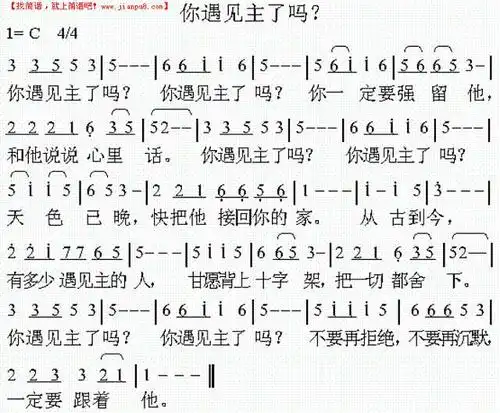 【找简谱,就上简谱吧!www.jianpu8.com】
你遇见主了吗?
1=C 4/4
3 3 5 5 3 | 5 - - - | 6 6 i i 6 | 5 - - - | 5 6 i i 6 | 5 6 6 5 3 - |
你遇见主了吗? 你遇见主了吗? 你一定要强留他,
2 2 2 1 6 3 5 | 5 2 - - | 3 3 5 5 3 | 5 - - - | 6 6 i i 6 | 5 - - - |
和他说说心里话。 你遇见主了吗? 你遇见主了吗?
5 i i 5 | 6 5 3 - | 2 2 1 6 6 5 6 | 1 - - - | i - i 5 | 3 - - - |
天色已晚,快把他接回你的家。 从古到今,
2 2 i 7 7 6 5 | 5 - - - | 5 i i 5 | 6 6 5 3 - | 2 2 1 6 3 5 | 5 2 — |
有多少遇见主的人, 甘愿背上十字架,把一切都舍下。
3 3 5 5 3 | 5 - - - | 6 6 i i 6 | 5 - - - | 5 i i i 5 | 6 6 6 5 3 |
你遇见主了吗? 你遇见主了吗? 不要再拒绝,不要再沉默,
2 2 3 3 2 1 | 1 - - - ‖
一定要跟着他。